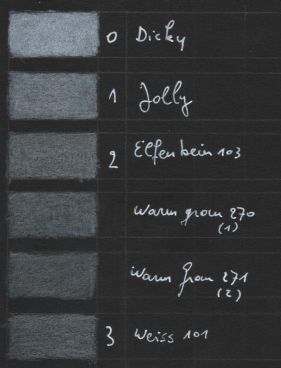 0 Dicky
1 Jolly
2 Elfenbein 103
Warm grau 270
(1)
Warm Grau 271
(2)
3 Weiss 101